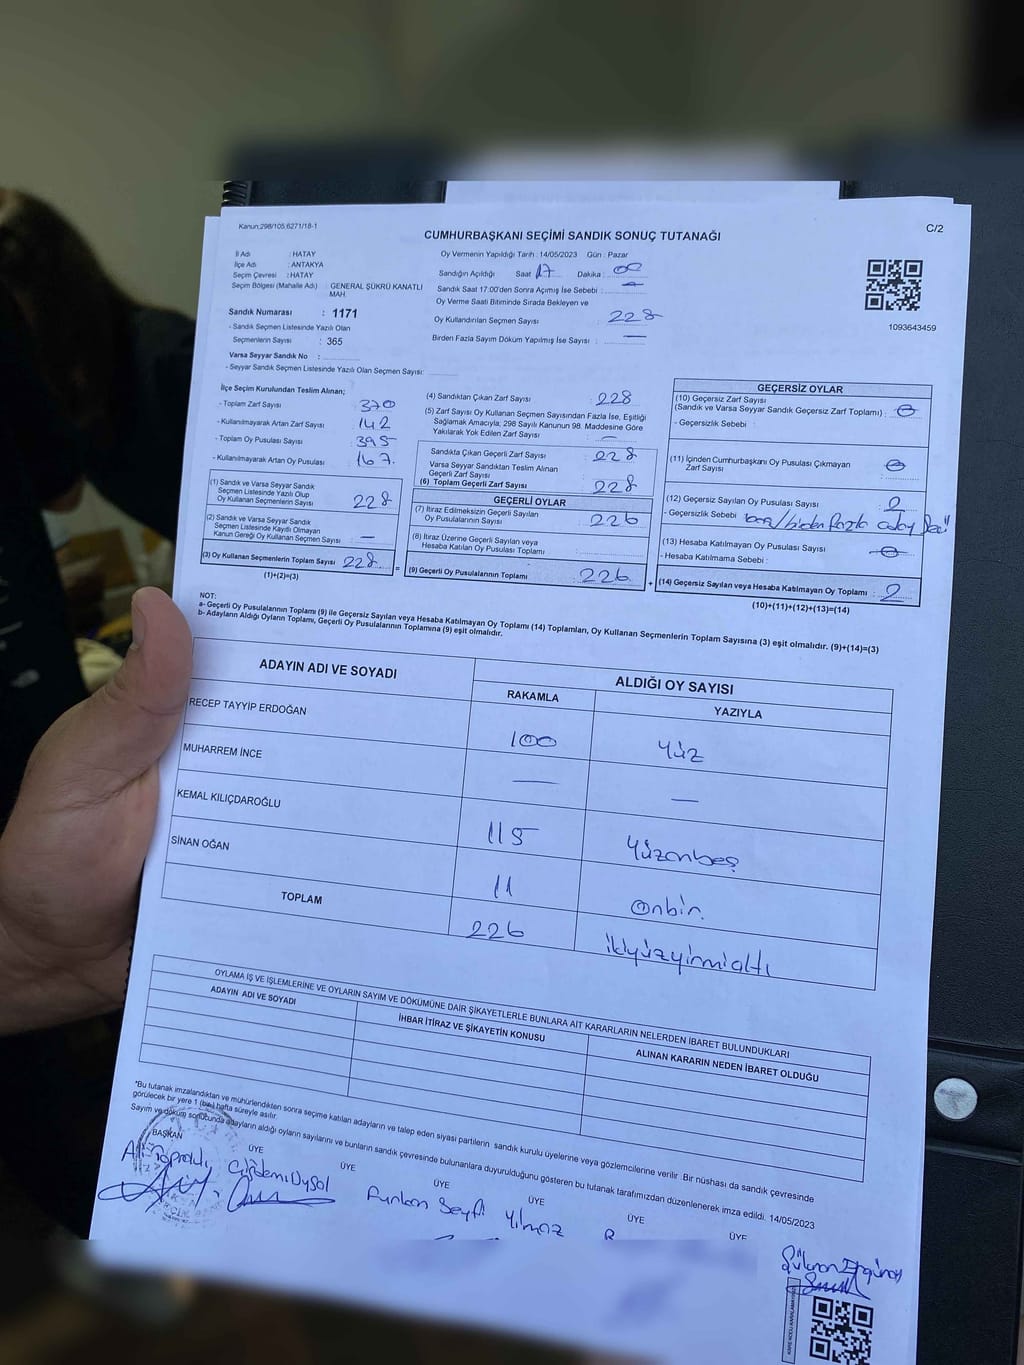 Kanun;298/105,6271/18-1
C/2
CUMHURBAŞKANI SEÇİMİ SANDIK SONUÇ TUTANAĞI
İl Adı : HATAY
İlçe Adı : ANTAKYA
Seçim Çevresi : HATAY
Seçim Bölgesi (Mahalle Adı) : GENERAL ŞÜKRÜ KANATLI MAH.
Sandık Numarası : 1171
- Sandık Seçmen Listesinde Yazılı Olan
Seçmenlerin Sayısı : 365
Varsa Seyyar Sandık No :
- Seyyar Sandık Seçmen Listesinde Yazılı Olan Seçmen Sayısı:
Oy Vermenin Yapıldığı Tarih : 14/05/2023 Gün : Pazar
Sandığın Açıldığı Saat : 17 Dakika : 00
Sandık Saat 17:00'den Sonra Açımış İse Sebebi :
Oy Verme Saati Bitiminde Sırada Bekleyen ve
Oy Kullandırılan Seçmen Sayısı : 228
Birden Fazla Sayım Döküm Yapılmış İse Sayısı : —
1093643459
İlçe Seçim Kurulundan Teslim Alınan;
- Toplam Zarf Sayısı : 370
- Kullanılmayarak Artan Zarf Sayısı : 142
- Toplam Oy Pusulası Sayısı : 395
- Kullanılmayarak Artan Oy Pusulası : 167.
(1) Sandık ve Varsa Seyyar Sandık
Seçmen Listesinde Yazılı Olup
Oy Kullanan Seçmenlerin Sayısı : 228
(2) Sandık ve Varsa Seyyar Sandık
Seçmen Listesinde Kaydı Olmayan
Kanun Gereği Oy Kullanan Seçmen Sayısı : —
(3) Oy Kullanan Seçmenlerin Toplam Sayısı : 228
(1)+(2)=(3)
(4) Sandıktan Çıkan Zarf Sayısı : 228
(5) Zarf Sayısı Oy Kullanan Seçmen Sayısından Fazla İse, Eşitliği
Sağlamak Amacıyla; 298 Sayılı Kanunun 98. Maddesine Göre
Yakılarak Yok Edilen Zarf Sayısı : —
Sandıkta Çıkan Geçerli Zarf Sayısı : 228
Varsa Seyyar Sandıktan Teslim Alınan
Geçerli Zarf Sayısı :
(6) Toplam Geçerli Zarf Sayısı : 228
GEÇERLİ OYLAR
(7) İtiraz Edilmeksizin Geçerli Sayılan
Oy Pusulalarının Sayısı : 226
(8) İtiraz Üzerine Geçerli Sayılan veya
Hesaba Katılan Oy Pusulası Toplamı :
(9) Geçerli Oy Pusulalarının Toplamı : 226
GEÇERSİZ OYLAR
(10) Geçersiz Zarf Sayısı
(Sandık ve Varsa Seyyar Sandık Geçersiz Zarf Toplamı) : 0
- Geçersizlik Sebebi :
(11) İçinden Cumhurbaşkanı Oy Pusulası Çıkmayan
Zarf Sayısı : 0
(12) Geçersiz Sayılan Oy Pusulası Sayısı : 2
- Geçersizlik Sebebi : boş/birden fazla aday
(13) Hesaba Katılmayan Oy Pusulası Sayısı : 0
- Hesaba Katılmama Sebebi :
(14) Geçersiz Sayılan veya Hesaba Katılmayan Oy Toplamı : 2
(10)+(11)+(12)+(13)=(14)
NOT:
a- Geçerli Oy Pusulalarının Toplamı (9) ile Geçersiz Sayılan veya Hesaba Katılmayan Oy Pusulası Toplamı (14) Toplamları, Oy Kullanan Seçmenlerin Toplam Sayısına (3) eşit olmalıdır. (9)+(14)=(3)
b- Adayların Aldığı Oyların Toplamı, Geçerli Oy Pusulalarının Toplamına (9) eşit olmalıdır.
ADAYIN ADI VE SOYADI
ALDIĞI OY SAYISI
RAKAMLA YAZIYLA
RECEP TAYYİP ERDOĞAN 100 Yüz
MUHARREM İNCE — —
KEMAL KILIÇDAROĞLU 115 Yüzonbeş
SİNAN OĞAN 11 Onbir.
TOPLAM 226 ikiyüzyirmialtı
OYLAMA İŞ VE İŞLEMLERİNE VE OYLARIN SAYIM VE DÖKÜMÜNE DAİR ŞİKAYETLERLE BUNLARA AİT KARARLARIN NELERDEN İBARET BULUNDUKLARI
ADAYIN ADI VE SOYADI
İHBAR İTİRAZ VE ŞİKAYETİN KONUSU
ALINAN KARARIN NEDEN İBARET OLDUĞU
*Bu tutanak imzalandıktan ve mühürlendikten sonra seçime katılan adayların ve talep eden siyasi partilerin sandık kurulu üyelerine veya gözlemcilerine verilir. Bir nüshası da sandık çevresinde
görülecek bir yere 1 (bir) hafta süreyle asılır.
Sayım ve döküm sonucunda adayların aldığı oyların sayılarını ve bunların sandık çevresinde bulunanlara duyurulduğunu gösteren bu tutanak tarafımızdan düzenlenerek imza edildi. 14/05/2023
BAŞKAN ÜYE ÜYE ÜYE ÜYE ÜYE ÜYE
Yılmaz